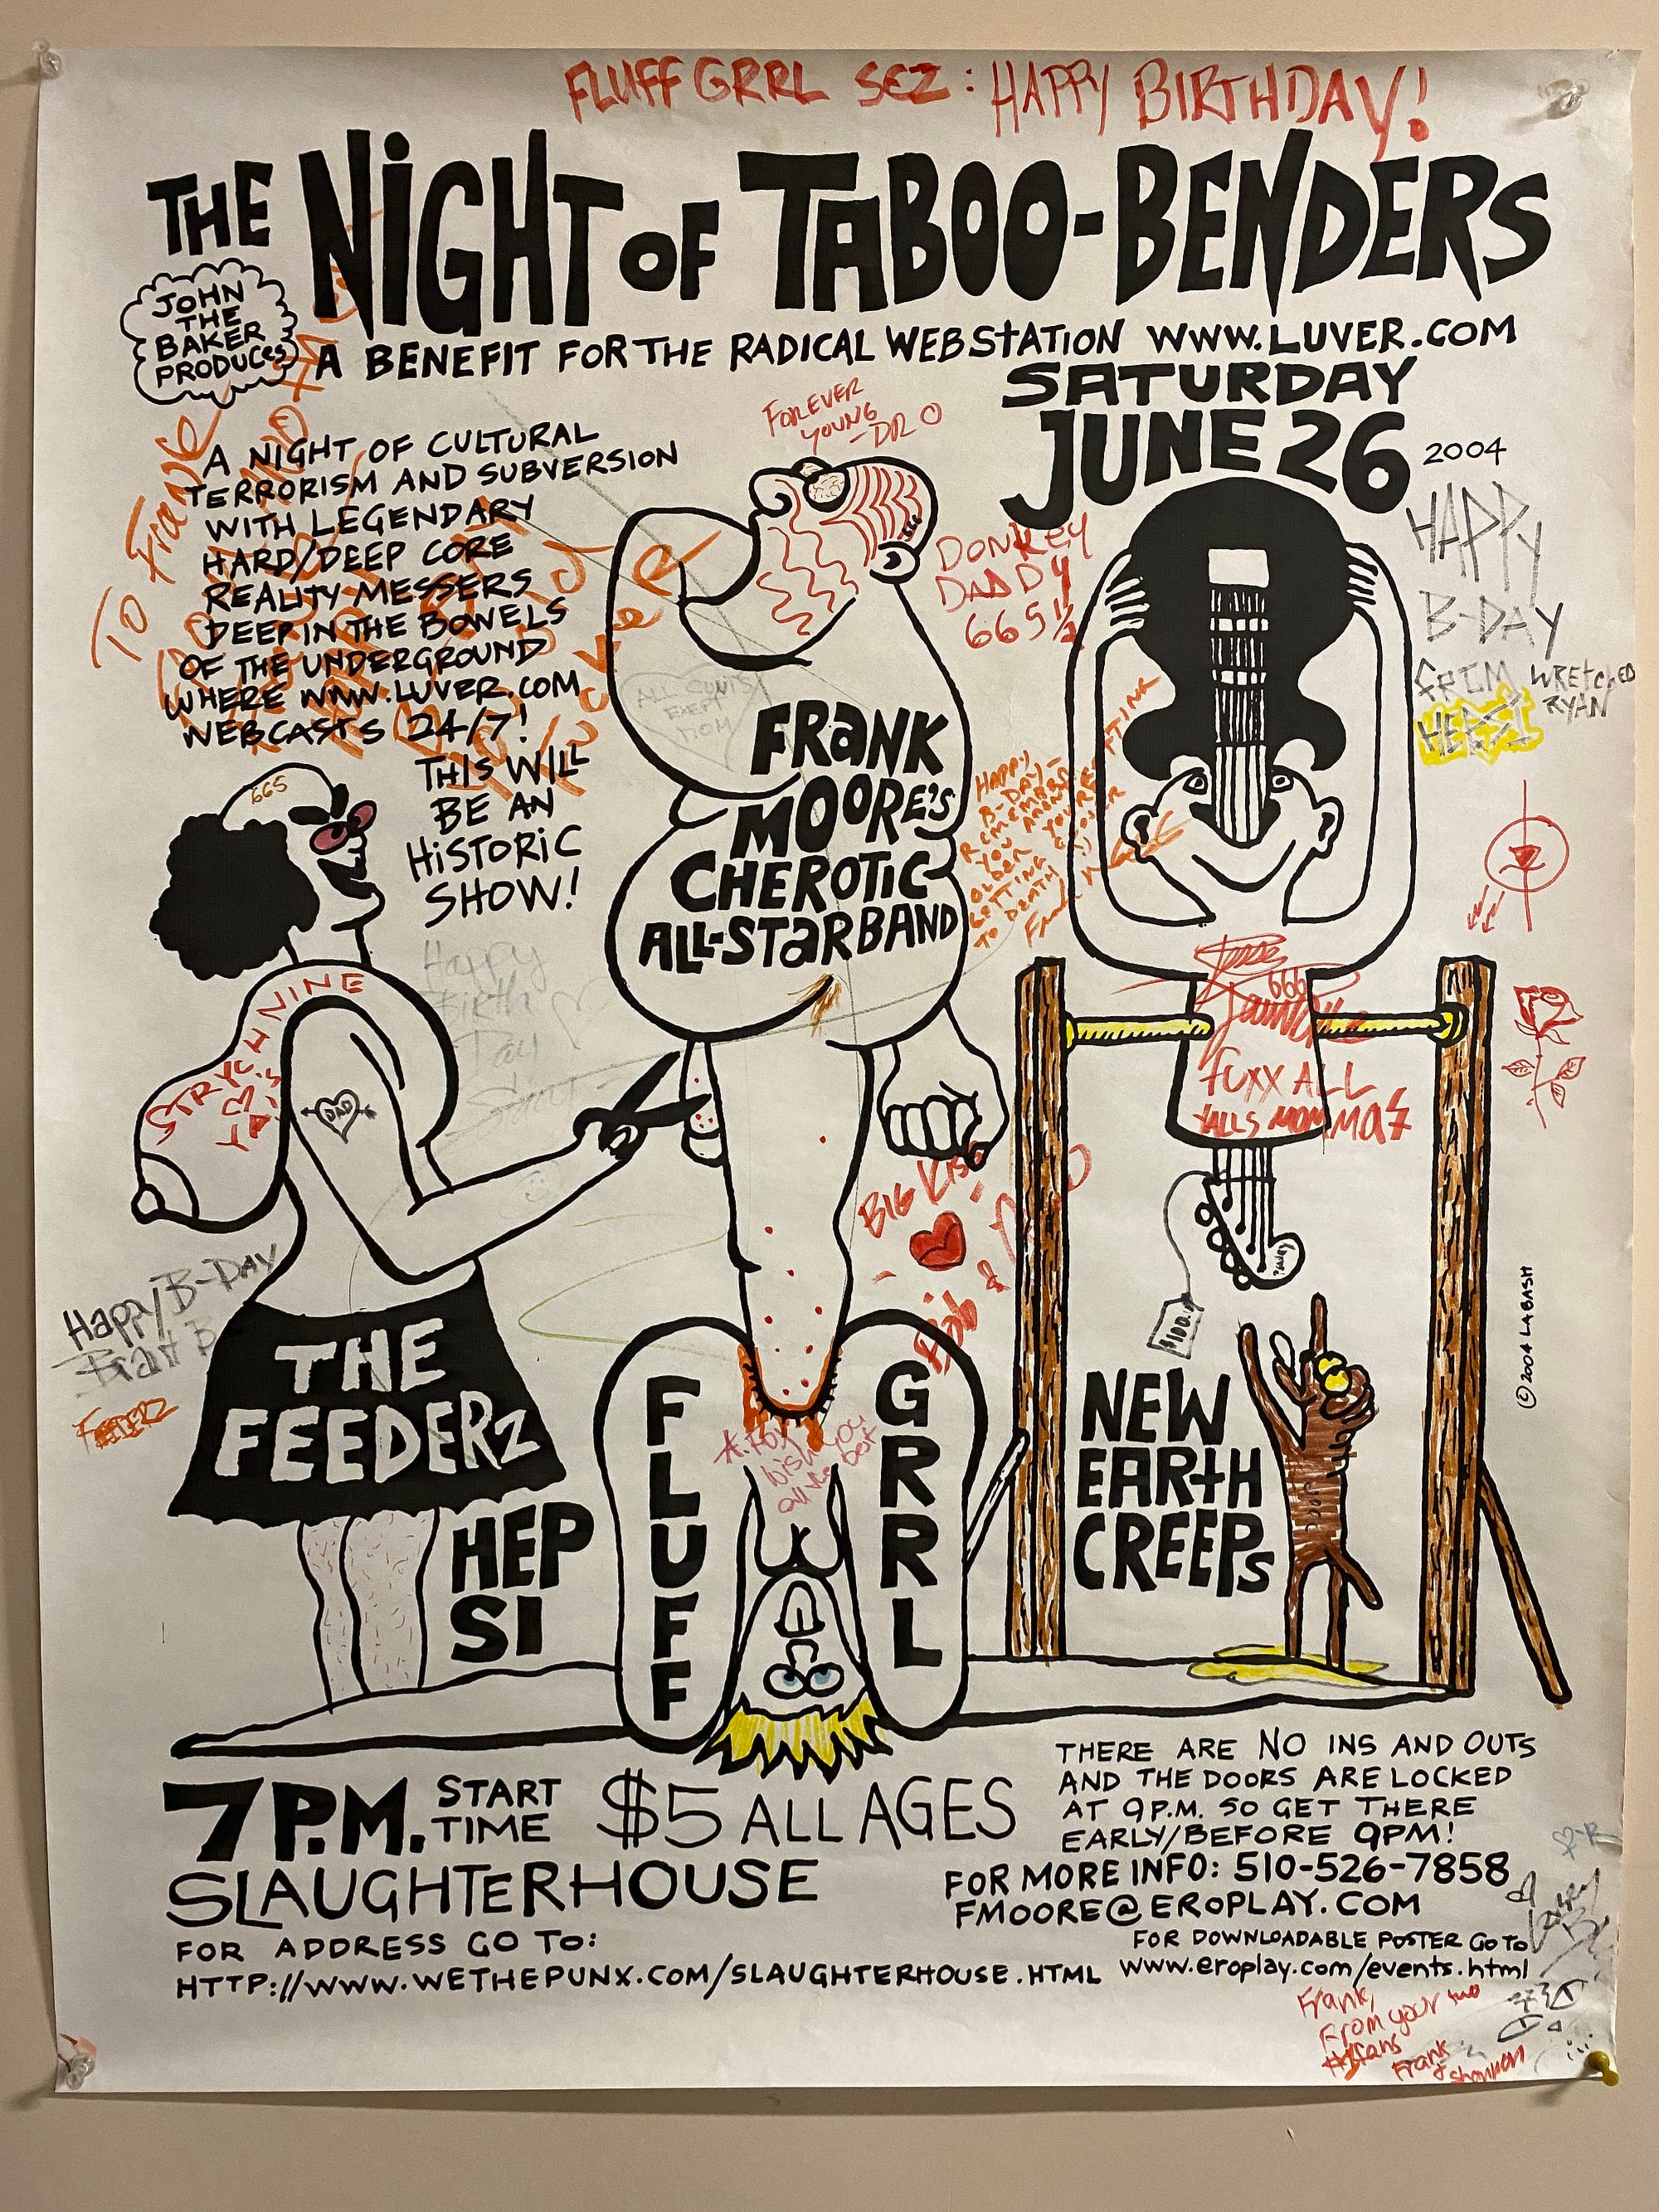 FLUFF GRRL SEZ: HAPPY BIRTHDAY!
THE NiGHT OF TABOO-BENDERS
JOHN
THE
BAKER
PRODUCES
A BENEFIT FOR THE RADICAL WEBSTATION WWW.LUVER.COM
SATURDAY
JUNE 26
2004
A NIGHT OF CULTURAL
TERRORISM AND SUBVERSION
WITH LEGENDARY
HARD/DEEP CORE
REALITY MESSERS
DEEP IN THE BOWELS
OF THE UNDERGROUND
WHERE WWW.LUVER.COM
WEBCASTS 24/7!
THIS WILL
BE AN
HISTORIC
SHOW!
To Frank
FOREVER
YOUNG
-DR O
DONKEY
DADDY
665 1/2
HAPPY
B-DAY
FRIM WRETCHED
RYAN
HEPSI
ALL CUNTS
EXEPT
MOM
FRANK
MOORE'S
CHEROTIC
ALL-STAR BAND
HAPPY
B-DAY-
REMEMBER
YOU AREN'T
OLDER YOU'RE
GETTING CLOSER
TO DEATH
665
STRYCHNINE
DAD
Happy
Birth
Day
666
FUXX ALL
YALLS MOMMAZ
BIG KISS
$100.
Happy B-DAY
FEEDERZ
THE
FEEDERZ
HEP
SI
FLUFF
GRRL
wish you
all the best
NEW
EARTH
CREEPS
© 2004 LABASH
7 P.M. START
TIME
$5 ALL AGES
THERE ARE NO INS AND OUTS
AND THE DOORS ARE LOCKED
AT 9 P.M. SO GET THERE
EARLY/BEFORE 9PM!
SLAUGHTERHOUSE
FOR MORE INFO: 510-526-7858
FMOORE@EROPLAY.COM
FOR ADDRESS GO TO:
HTTP://WWW.WETHEPUNX.COM/SLAUGHTERHOUSE.HTML
FOR DOWNLOADABLE POSTER GO TO
www.eroplay.com/events.html
Frank,
From your two
#1 fans
Frank
+ Shannon